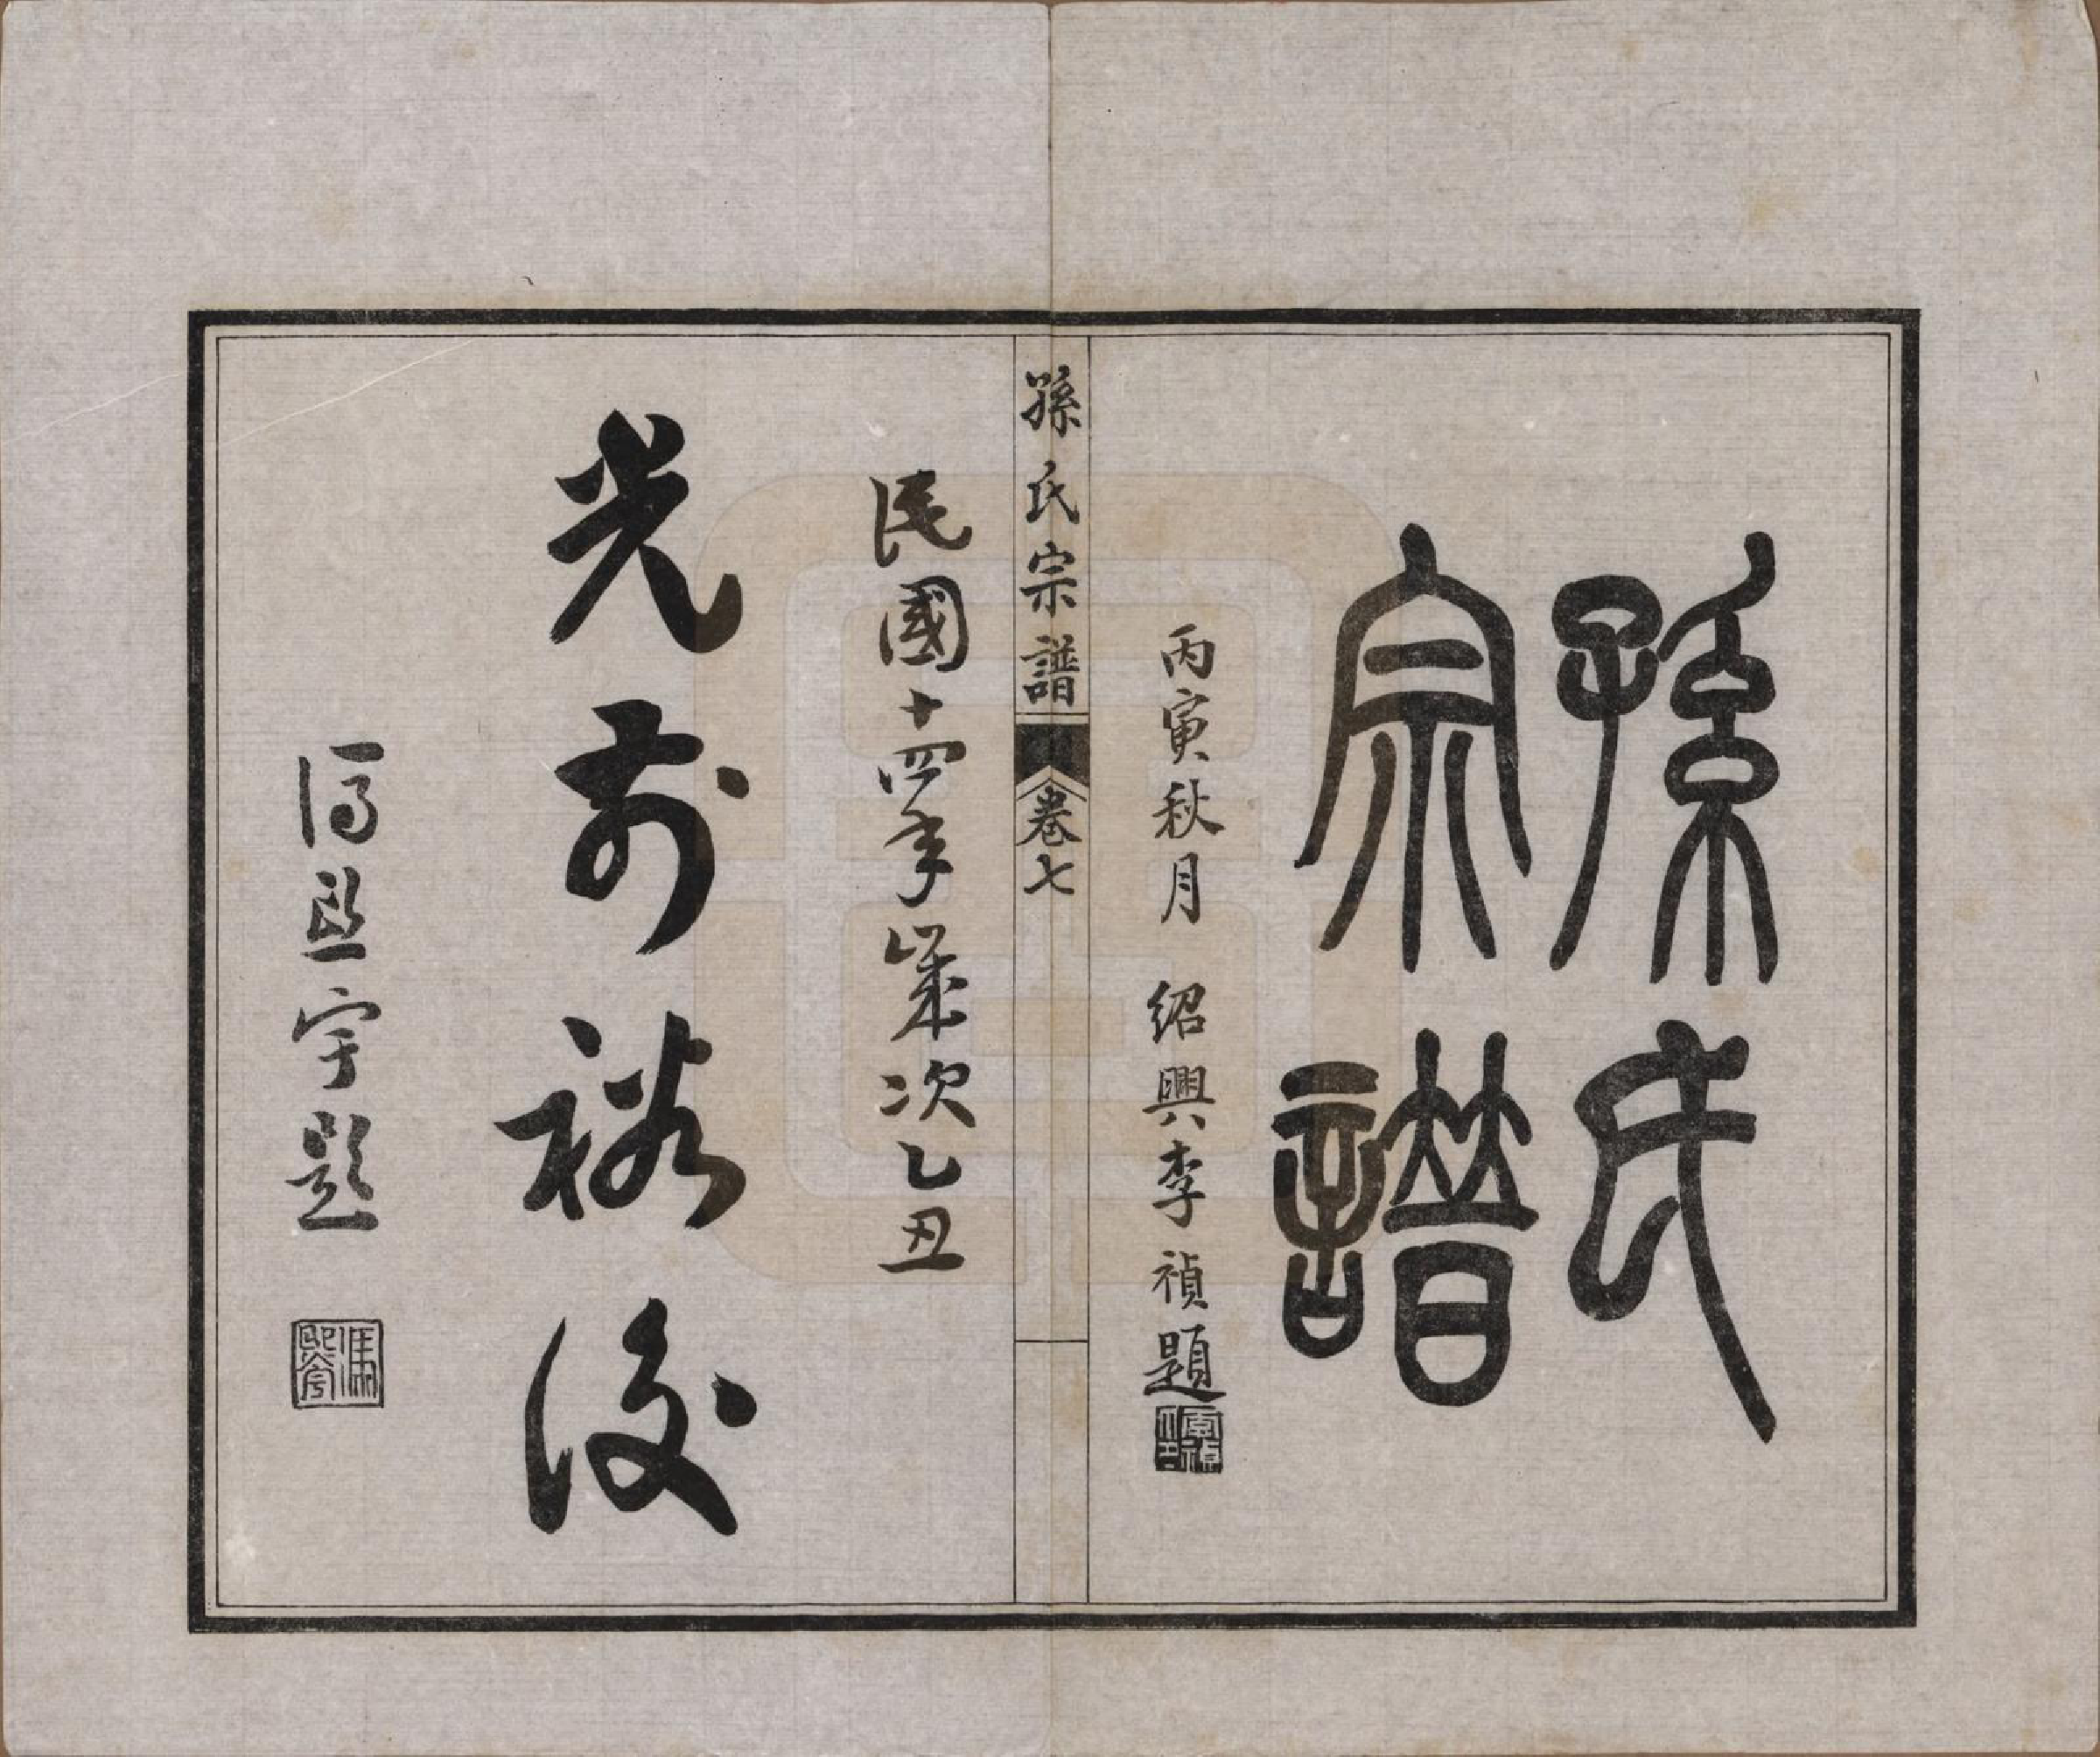 孫氏
宗譜
丙寅秋月 紹興李禎題
孫氏宗譜 卷七
民國十四年歲次乙丑
光前裕後
馮熙宇題